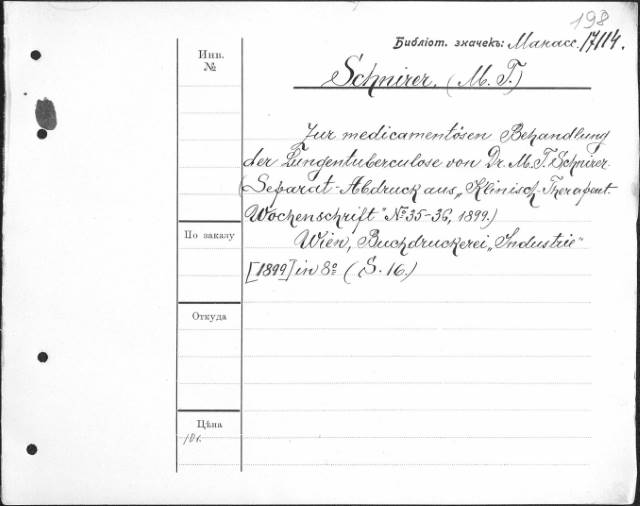 198
Библіот. значекъ: Манасс. 17114.
Инв.
№
Schnirer. (M. T.)
Zur medicamentösen Behandlung
der Lungentuberculose von Dr. M. T. Schnirer.
(Separat-Abdruck aus „Klinisch-Therapeut.
Wochenschrift" № 35-36, 1899.)
По заказу
Wien, Buchdruckerei „Industrie"
[1899] in 8° (S. 16.)
Откуда
Цѣна